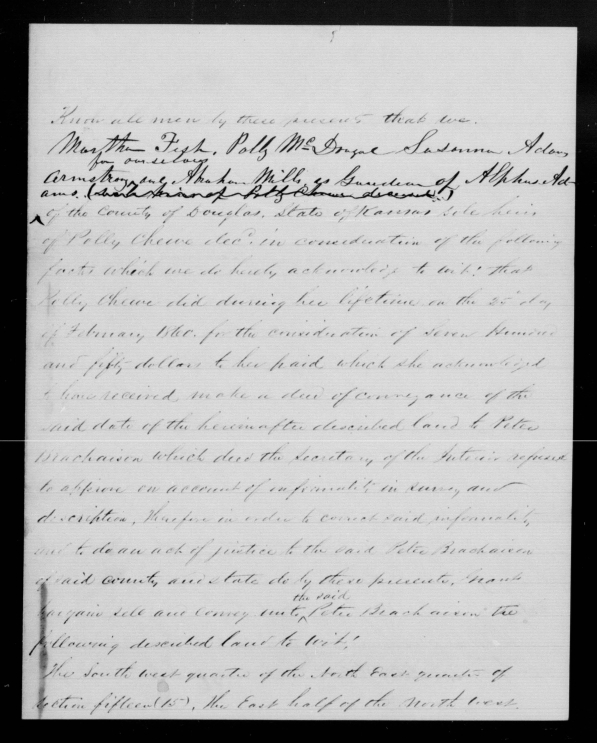 Know all men by these presents that we.
Martha Fish, Polly McDougal Susanna Adams
for ourselves
Armstrong and Abraham Mills, as Guardian of Alpheus Ad
ams. (
of the County of Douglas. State of Kansas sole heirs
of Polly Chewe decd. in consideration of the following
facts which we do hereby acknowledge to wit: that
Polly Chewe did during her lifetime on the 25th day
of February 1860. for the consideration of seven Hundred
and fifty dollars to her paid which she acknowledged
to have received, make a deed of conveyance of the
said date of the hereinafter described land to Peter
Brachaison which deed the Secretary of the Interior refused
to approve on account of informality in survey and
description, Therefore in order to correct said informality
and to do an act of justice to the said Peter Brachaison
of said County and state do by these presents, Grant
the said
bargain sell and convey unto Peter Brachaison the
following described land to wit:
The South west quarter of the North East quarter of
section fifteen (15), the East half of the North West.